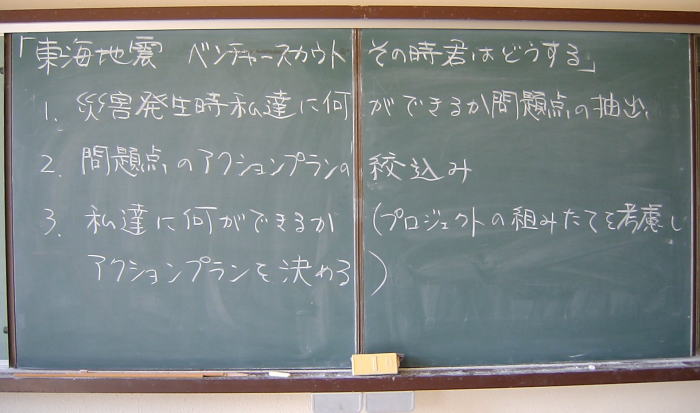 「東海地震 ベンチャースカウト その時君はどうする」
1. 災害発生時私達に何ができるか問題点の抽出、
2. 問題点のアクションプランの絞込み
3. 私達に何ができるか (プロジェクトの組みたてを考慮し
アクションプランを決める)